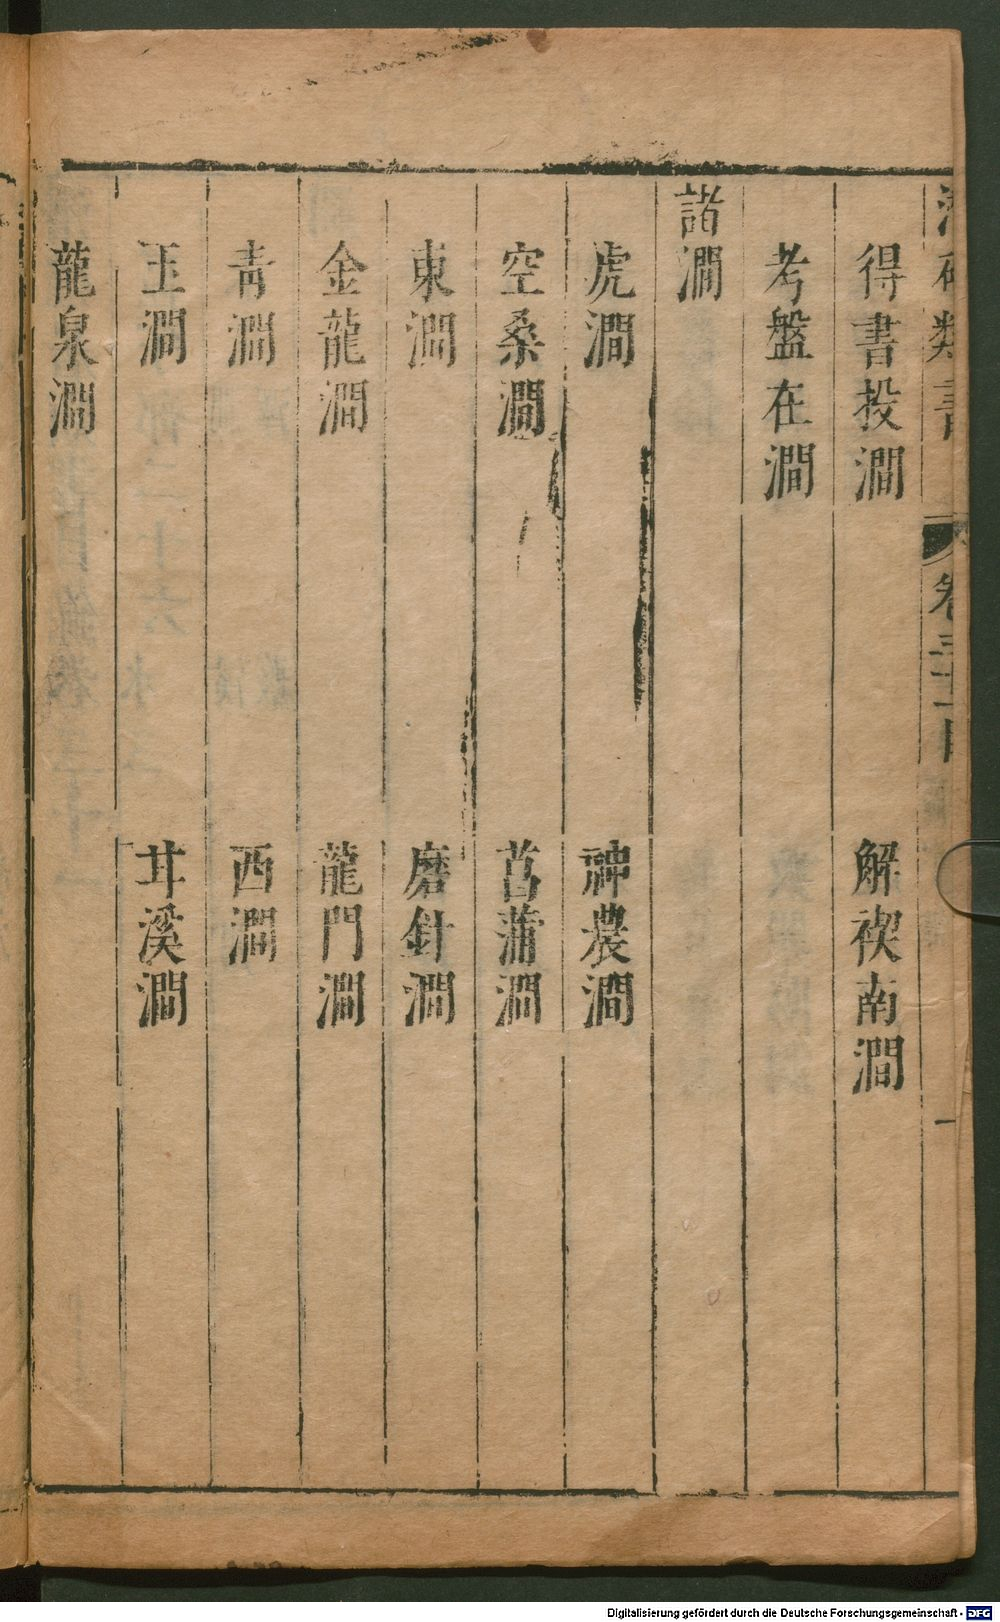 類書 卷三十 一
得書投澗 解禊南澗
考盤在澗
諸澗
虎澗 神農澗
空桑澗 菖蒲澗
東澗 磨針澗
金龍澗 龍門澗
青澗 西澗
玉澗 溪澗
龍泉澗
Digitalisierung gefördert durch die Deutsche Forschungsgemeinschaft - DFG